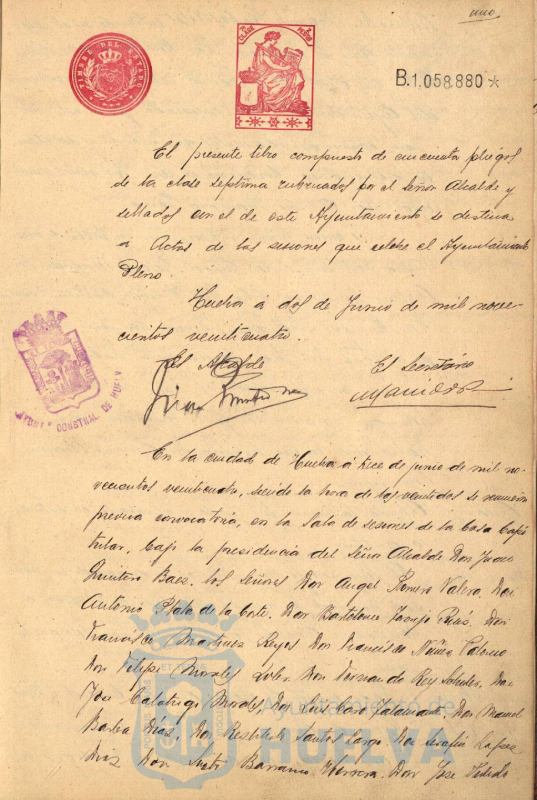 uno.
TIMBRE DEL ESTADO
B.1.058.880 *
El presente libro compuesto de cincuenta pliegos
de la clase septima rubricados por el Señor Alcalde y
sellados con el de este Ayuntamiento se destina
a Actas de las sesiones que celebre el Ayuntamiento
Pleno.
Huelva á dos de Junio de mil nove-
cientos veinticuatro.
El Alcalde
El Secretario
AYUNTº CONSTNAL DE HUELVA
En la ciudad de Huelva á trece de junio de mil no-
vecientos veinticuatro, siendo la hora de las veintidos se reunieron
previa convocatoria, en la Sala de sesiones de la Casa Capi-
tular, bajo la presidencia del Señor Alcalde Don Juan
Quintero Baez, los Señores Don Angel Romero Valero, Don
Antonio Plata de la Corte, Don Bartolomé Ruiz, Don
Francisco Martinez Reyes Don Francisco Nuñez
Don Felipe Morales Don Fernando Rey Don
José Morales, Don Luis Caro Don Manuel
Barba Diaz, Don Restituto Santos Don Serafin
Diaz Don Justo Barranco Herrera, Don José
Ayuntamiento de
HUELVA